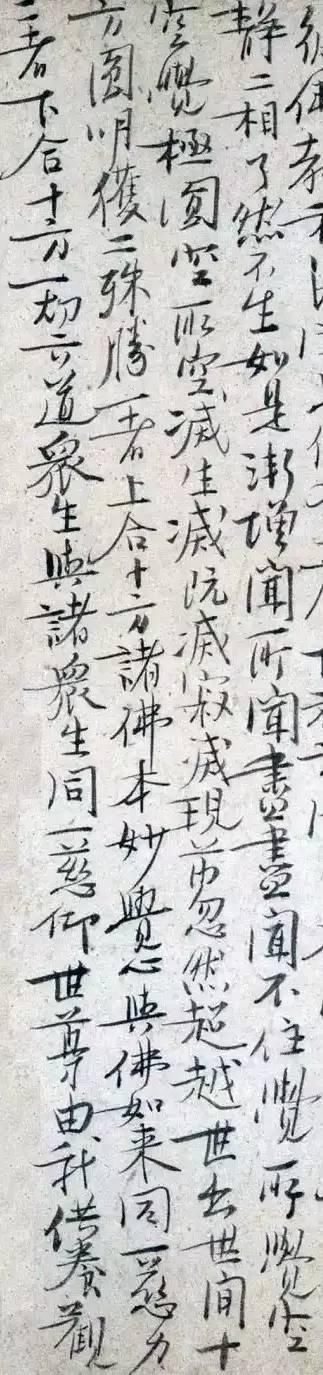 彼佛教
靜二相了然不生如是漸增聞所聞盡盡聞不住覺所覺空
空覺極圓空所空滅生滅既滅寂滅現前忽然超越世出世間十
方圓明獲二殊勝一者上合十方諸佛本妙覺心與佛如来同一慈力
二者下合十方一切六道衆生與諸衆生同一慈仰世尊由我供養觀